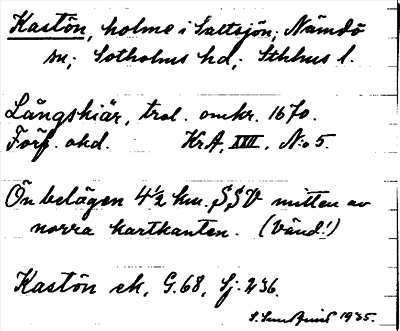 Kastön, holme i Saltsjön; Nämdö
sn; Sotholms hd; Sthlms l.
Långskiär, trol. omkr. 1670.
Förf. okd. KrA, XXII, N:o 5.
Ön belägen 4½ km. SSV mitten av
norra kartkanten. (Vänd!)
Kastön ek, G.68, Sj. 236.
1935.